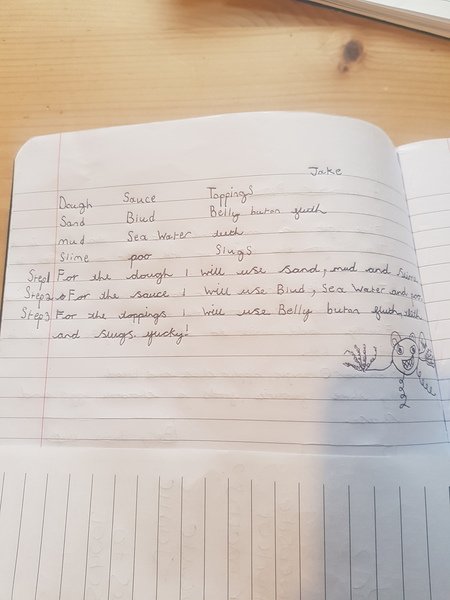 Jake
Dough Sauce Toppings
Sand Blud Belly buton fluth
mud Sea Water teeth
Slime poo Slugs
Step1 For the dough i will use sand, mud and slime
Step2 For the sauce i will use Blud, Sea Water and poo
Step3 For the toppings i will use Belly buton fluth,
and slugs. yucky!